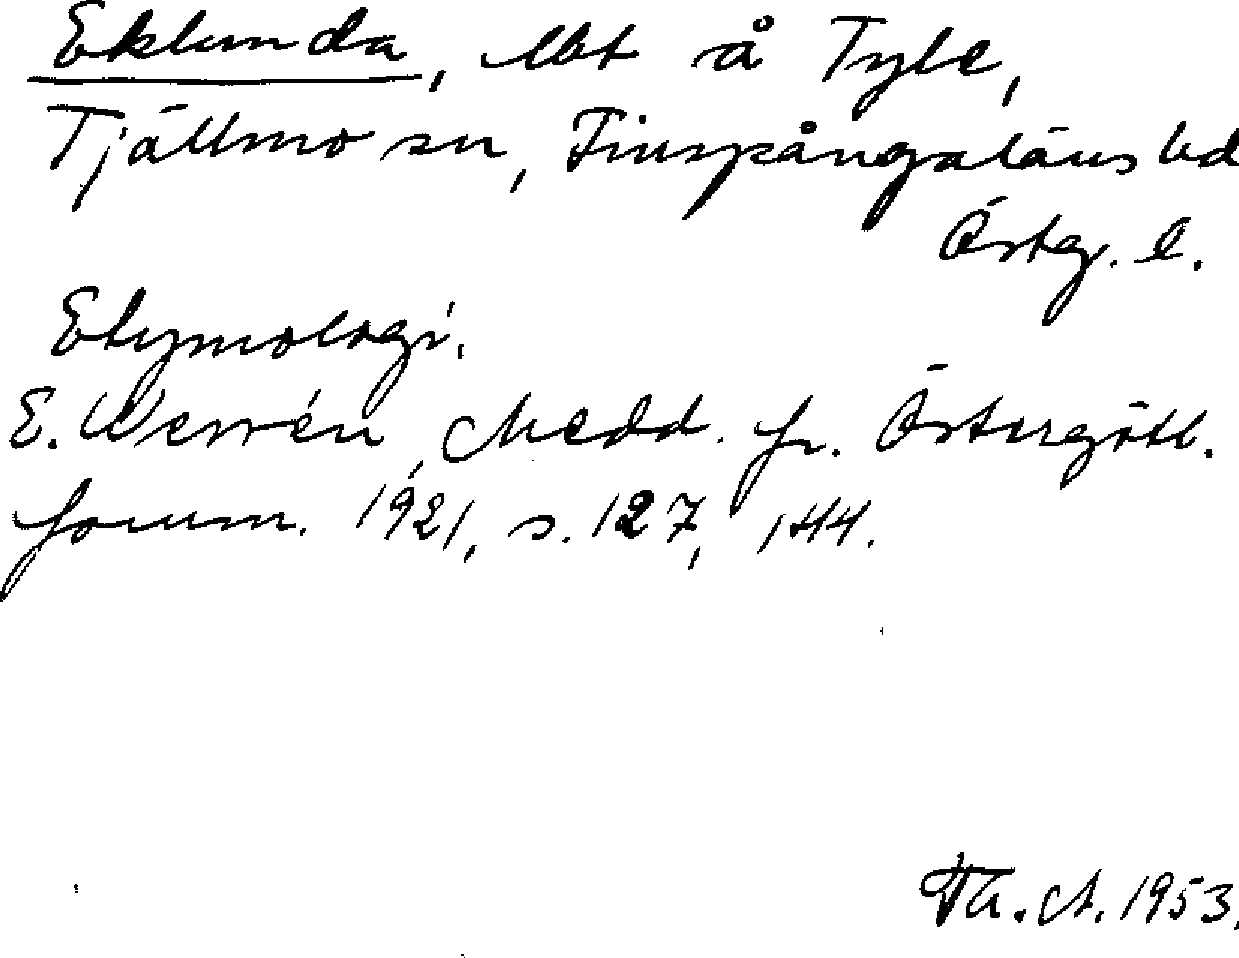 Eklunda, lht å Tyle,
Tjällmo sn, Finspångaläns hd
Östg. l.
Etymologi.
E. Wennrén, Medd. fr. Östergötl.
fornm. 1921, s. 127, 144.
Th. A. 1953.